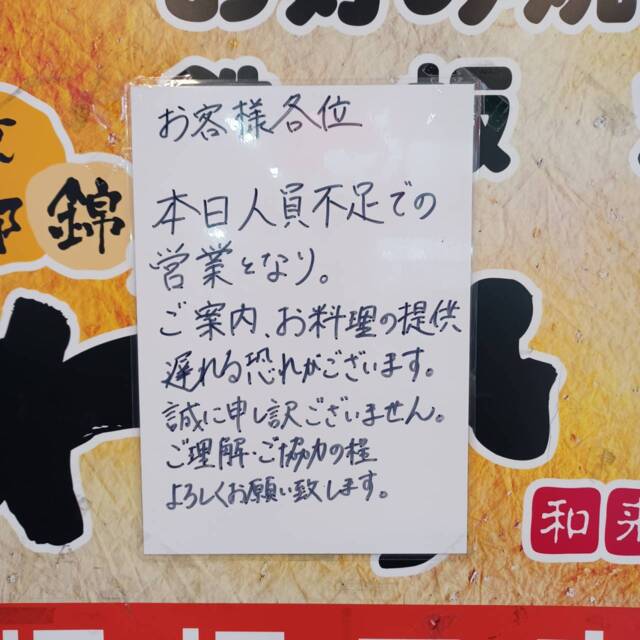 お客様各位
本日人員不足での
営業となり。
ご案内、お料理の提供
遅れる恐れがございます。
誠に申し訳ございません。
ご理解・ご協力の程
よろしくお願い致します。
錦
和